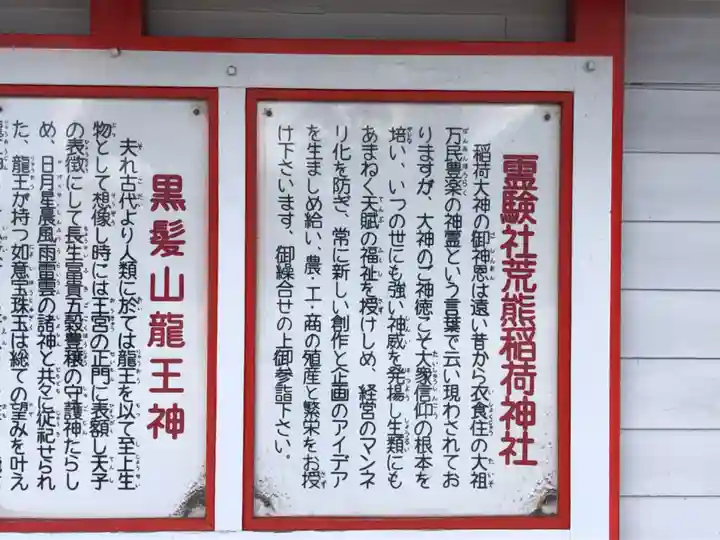 霊験社荒熊稲荷神社
稲荷大神の御神恩は遠い昔から衣食住の大祖
万民豊楽の神霊という言葉で云い現わされてお
りますが、大神のご神徳こそ大衆信仰の根本を
培い、いつの世にも強い神威を発揚し生類にも
あまねく天賦の福祉を授けしめ、経営のマンネ
リ化を防ぎ、常に新しい創作と企画のアイデア
を生ましめ給い、農・工・商の殖産と繁栄をお授
け下さいます、御繰合せの上御参詣下さい。
黒髪山龍王神
夫れ古代より人類に於ては龍王を以て至上生
物として想像し時には王宮の正門に表額し天子
の表徴にして長生富貴五穀豊穣の守護神たらし
め、日月星晨風雨雷雲の諸神と共々に従祀せられ
た、龍王が持つ如意宝珠玉は総ての望みを叶え